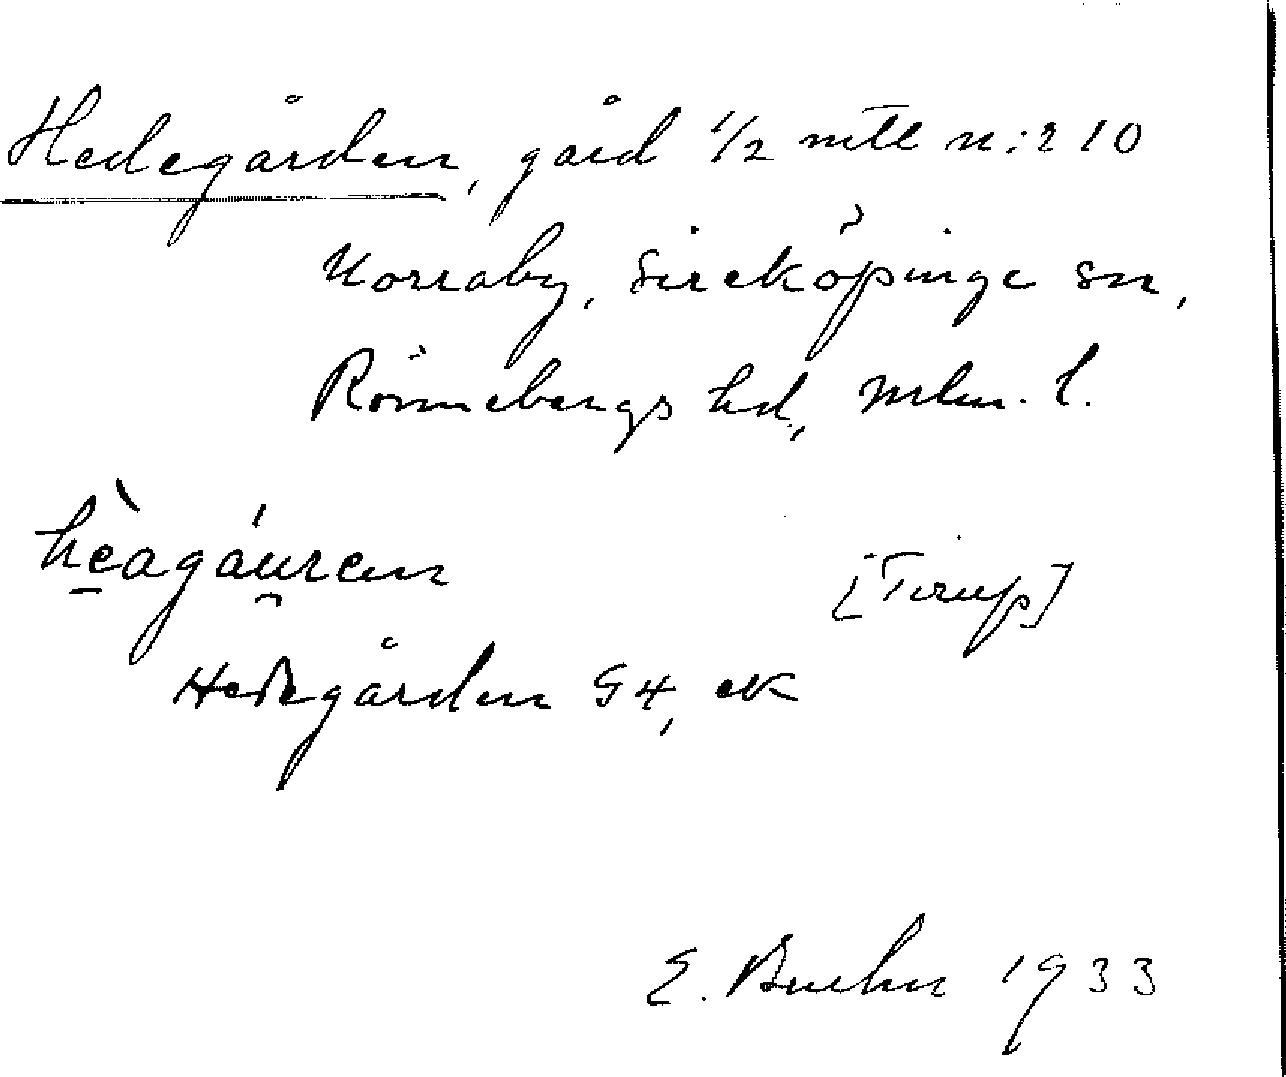 Hedegården, gård 1/2 mtl n:r 10
Norraby, Sireköpinge sn,
Rönnebergs hd, Mlm. l.
hèagáuren [Tirup]
Hedegården G4, ek
E. Buchn 1933